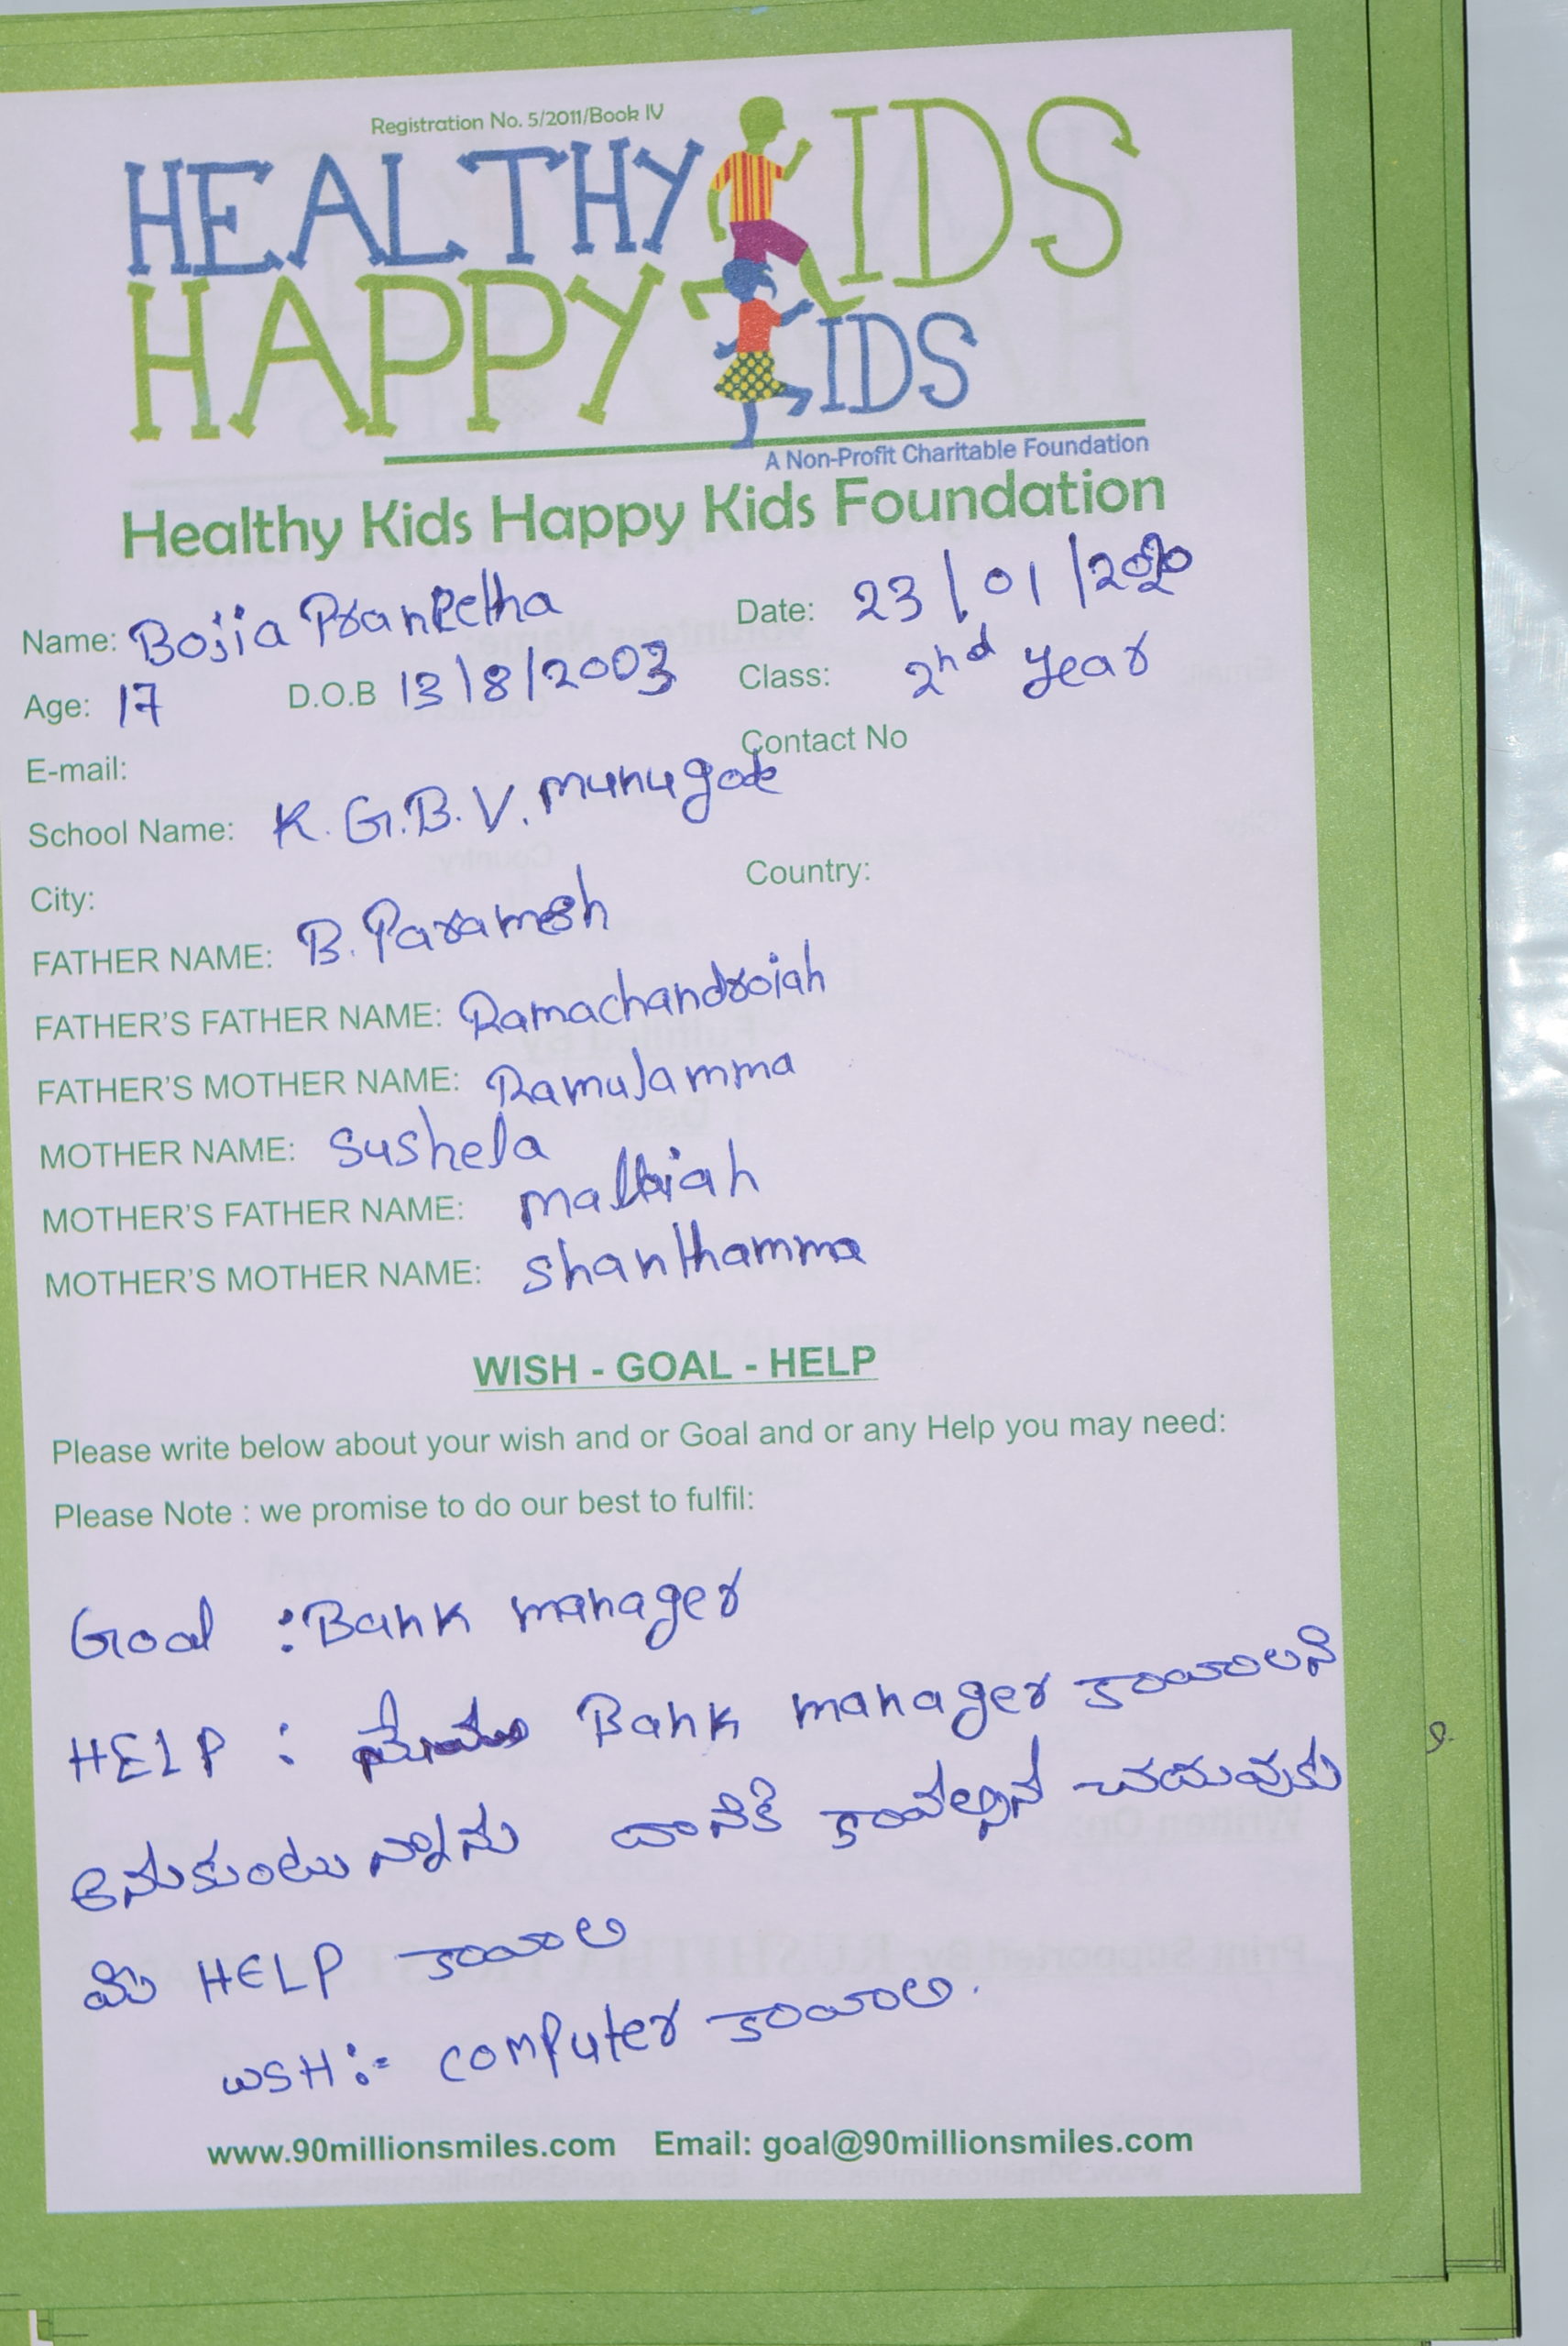 Registration No. 5/2011/Book IV
HEALTHY KIDS
HAPPY KIDS
A Non-Profit Charitable Foundation
Healthy Kids Happy Kids Foundation
Name: Bojja Praneetha Date: 23/01/2020
Age: 17 D.O.B 13/8/2003 Class: 2nd year
E-mail: Contact No
School Name: K.G.B.V. munugode
City: Country:
FATHER NAME: B. Paramesh
FATHER'S FATHER NAME: Ramachandraiah
FATHER'S MOTHER NAME: Ramulamma
MOTHER NAME: Sushela
MOTHER'S FATHER NAME: mallaiah
MOTHER'S MOTHER NAME: shanthamma
WISH - GOAL - HELP
Please write below about your wish and or Goal and or any Help you may need:
Please Note : we promise to do our best to fulfil:
Goal : Bank manager
HELP : Bank manager కావాలని
అనుకుంటున్నాను దానికి కావల్సిన చదువుకు
మీ HELP కావాల
WSH :- computer కావాల.
www.90millionsmiles.com Email: goal@90millionsmiles.com